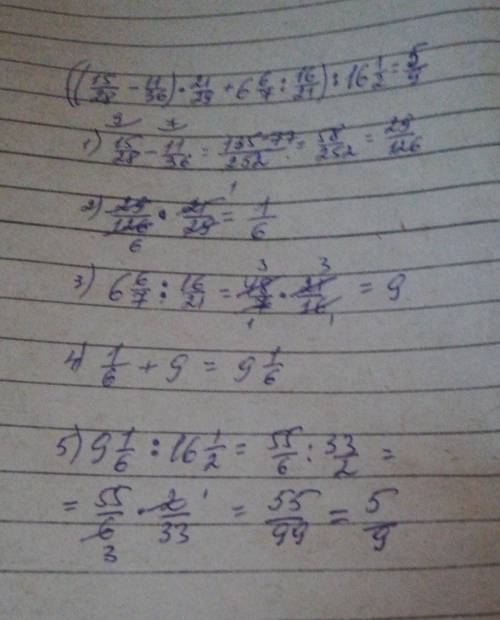 ((15/28 - 11/36) · 21/29 + 6 6/7 : 16/21) : 16 1/2 = 5/9
1) 15/28 - 11/36 = 135-77/252 = 58/252 = 29/126
2) 29/126 · 21/29 = 1/6
3) 6 6/7 : 16/21 = 48/7 · 21/16 = 9
4) 1/6 + 9 = 9 1/6
5) 9 1/6 : 16 1/2 = 55/6 : 33/2 =
= 55/6 · 2/33 = 55/99 = 5/9